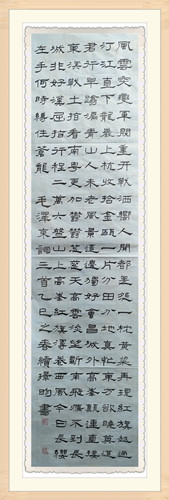 風雲突變軍閥重開戰洒向人間都是怨一枕黃粱再現紅旗躍過
汀江直下龍巖上杭收拾金甌一片分田分地真忙東方欲曉莫道
君行早踏遍青山人未老風景這邊獨好會昌城外高峯顛連直接
東溟戰士指看南粤更加鬱鬱葱葱天高雲淡望斷南飛雁不到長
城非好漢屈指行程二萬六盤山上高峯紅旗漫卷西風今日長纓
在手何時縛住蒼龍 毛澤東詞三首乙巳之春書